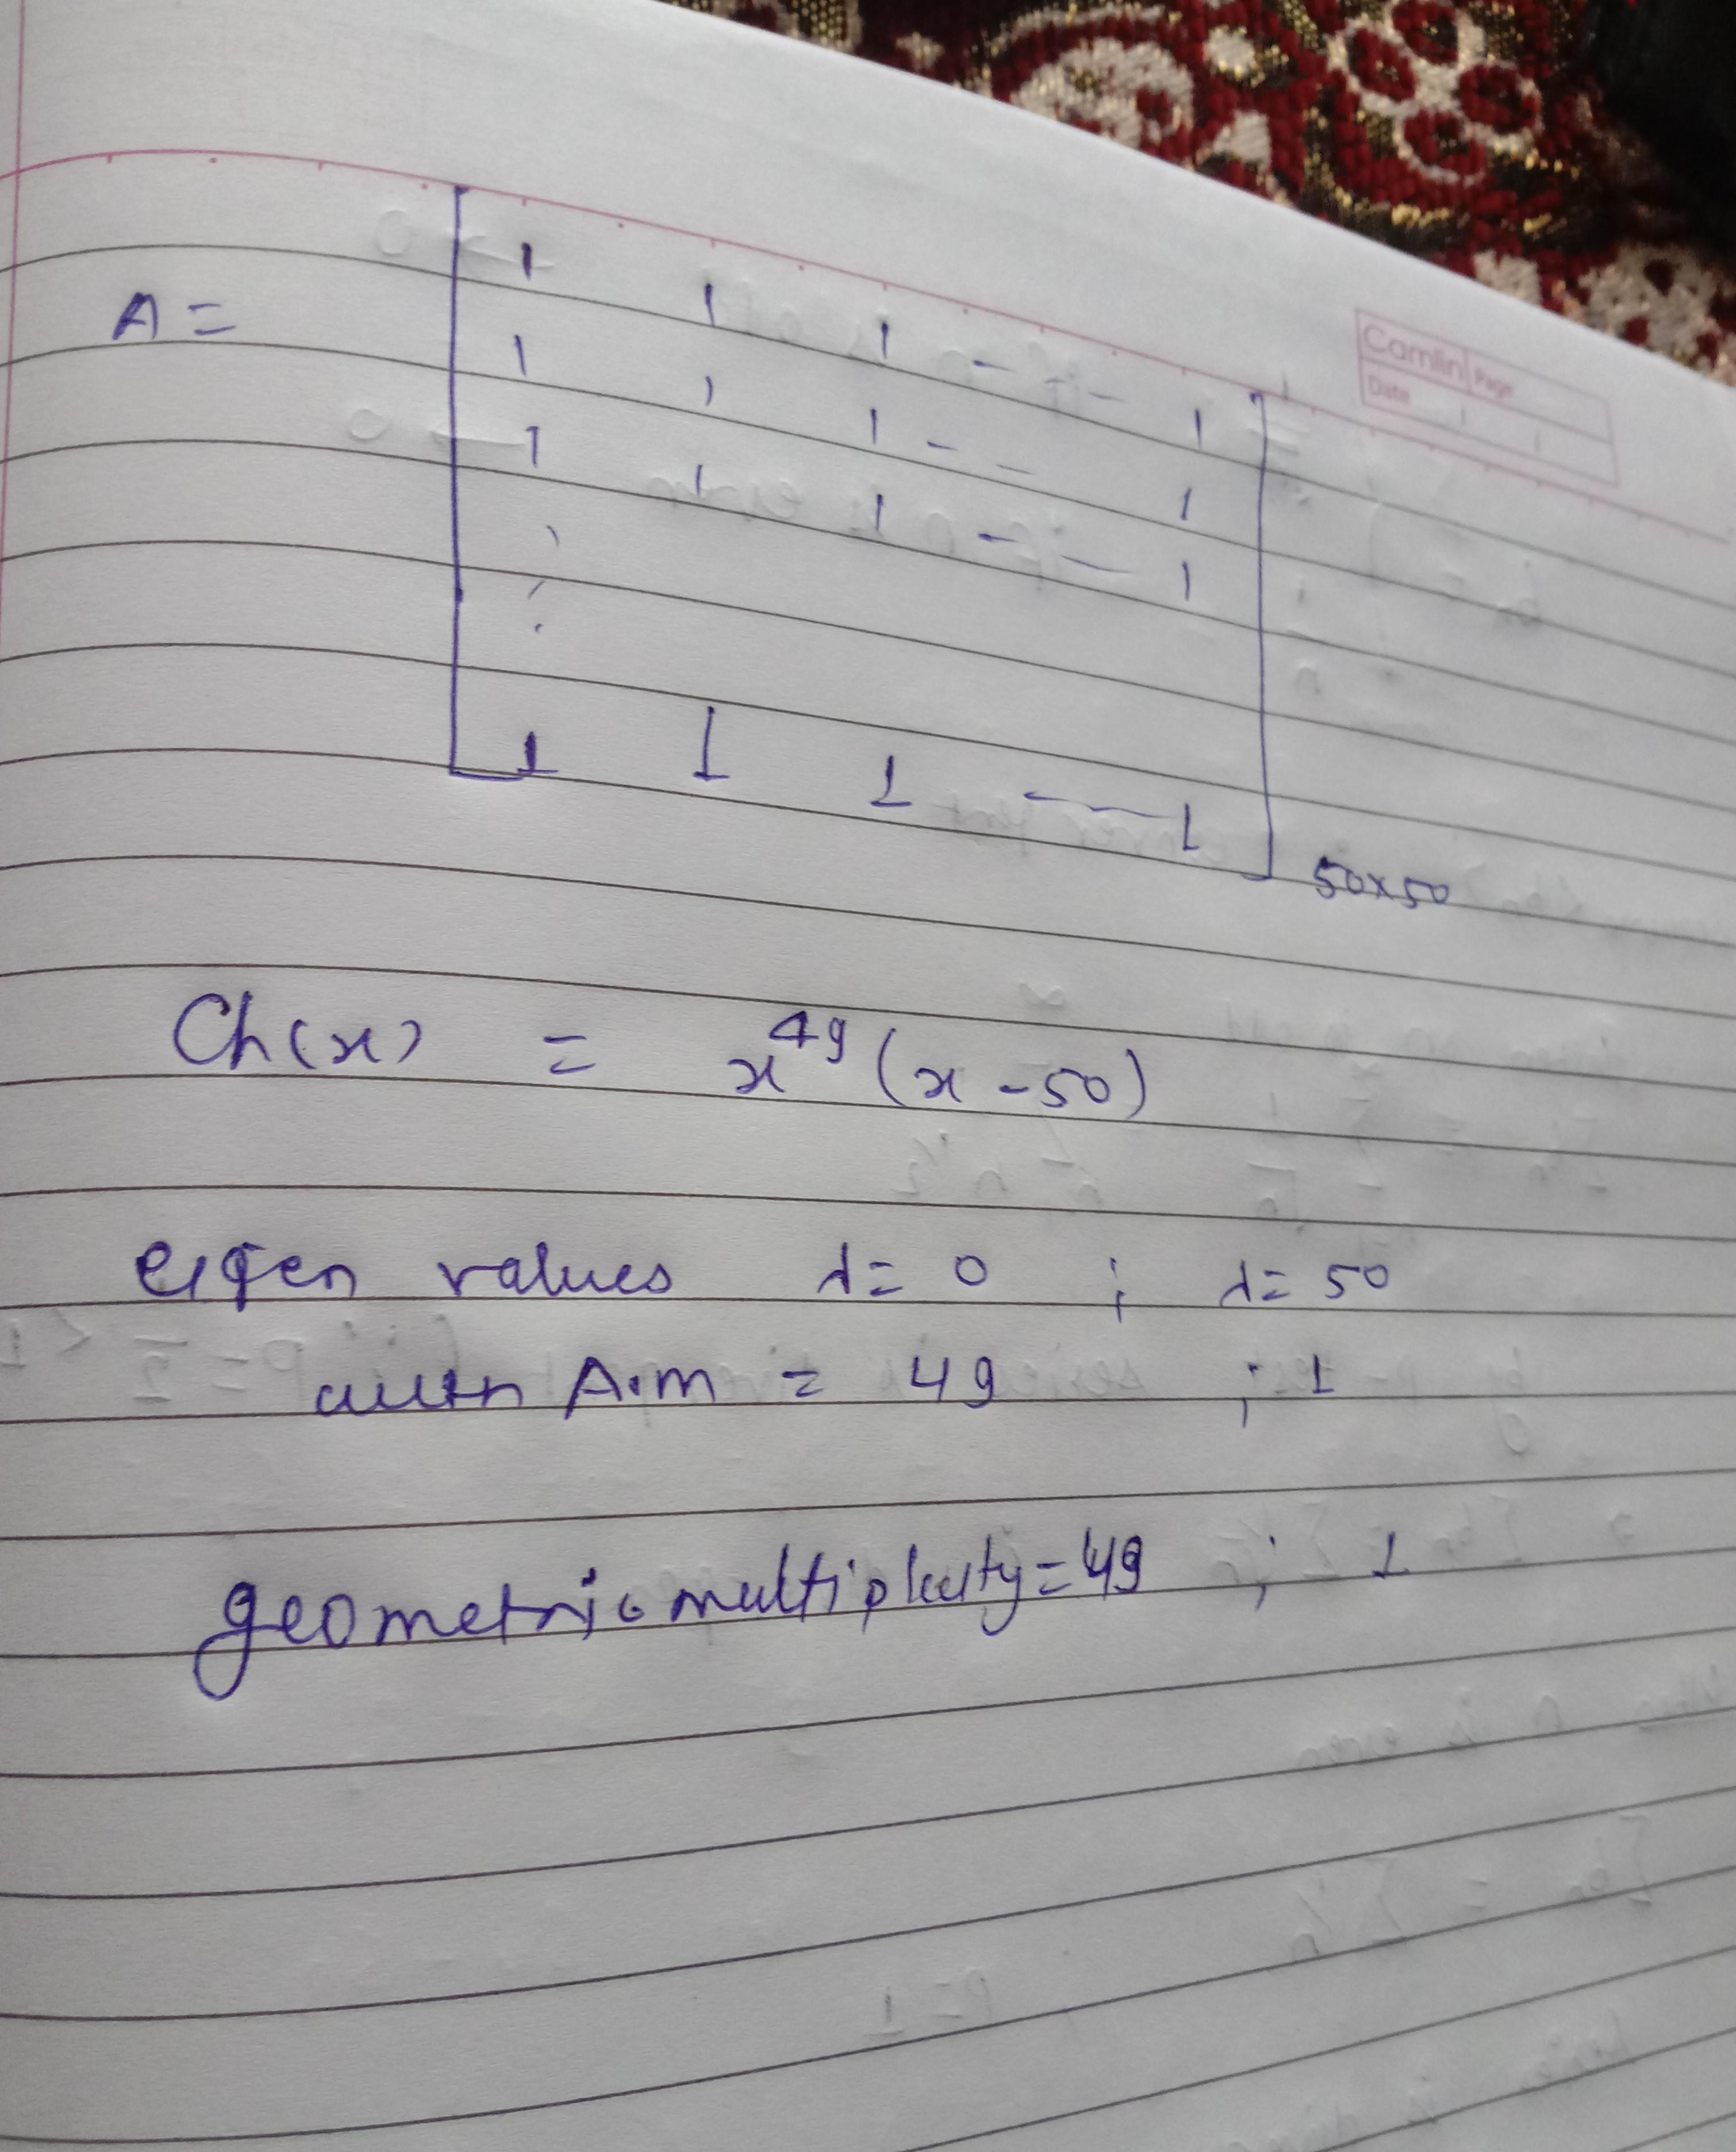 Camlin Page
Date / /
A =
1 1 1 - - 1
1 1 1 - - 1
1 1 1 - - 1
1 1 1 - - 1
50×50
Ch(x) = x^49 (x - 50)
eigen values λ = 0 ; λ = 50
with A.m = 49 ; 1
geometric multiplicity = 49 ; 1